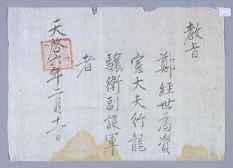 教旨
鄭經世為資
憲大夫行龍
驤衛副護軍
者
天啓六年二月十日